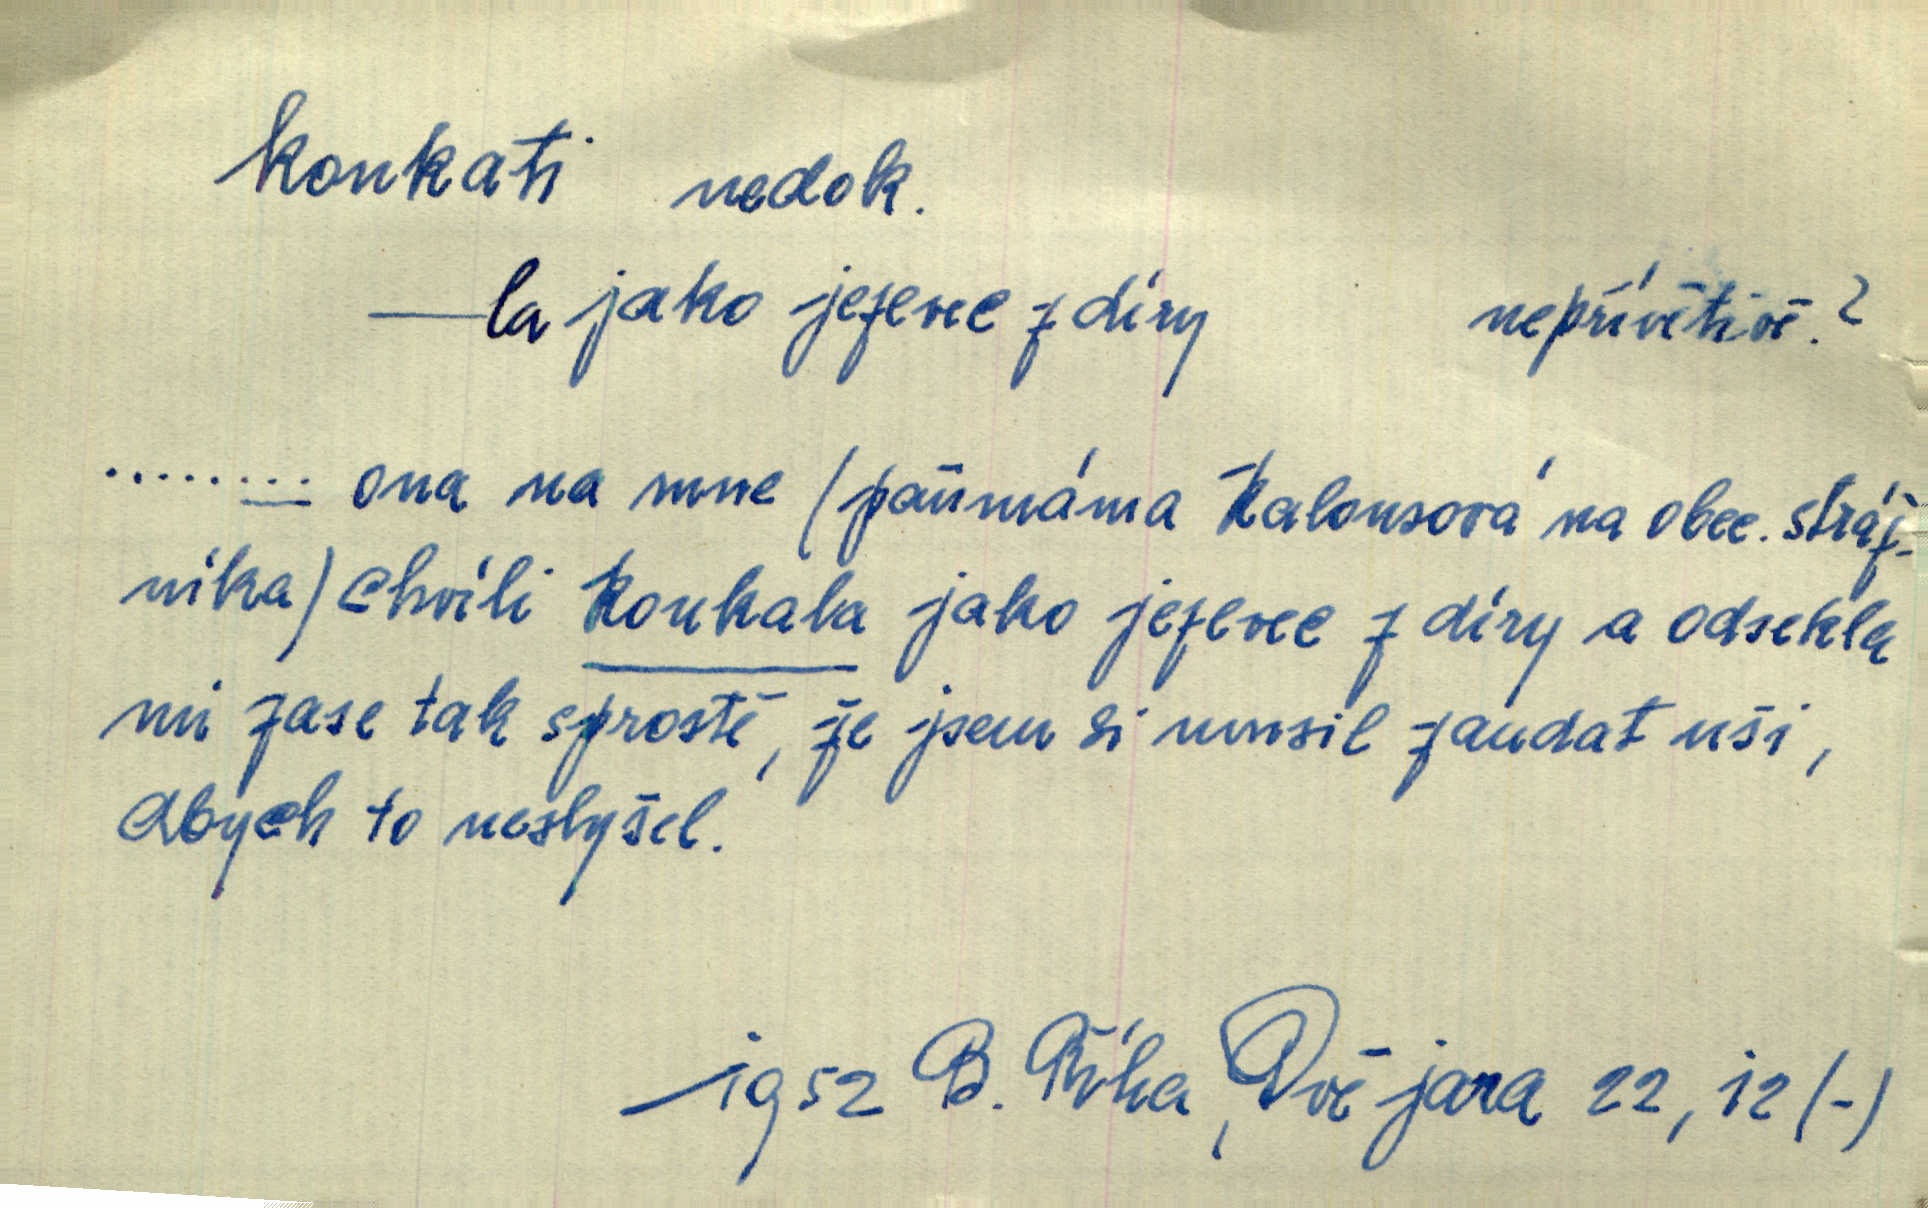 koukati nedok.
—la jako jezevec z díry nepřívětivě.?
......... ona na mne (paňmáma Kalousová na obec. stráž-
níka) chvíli koukala jako jezevec z díry a odsekla
mi zase tak sprostě, že jsem si musil zandat uši,
abych to neslyšel.
1952 B. Říha, Dvě jara 22, 12 (-)